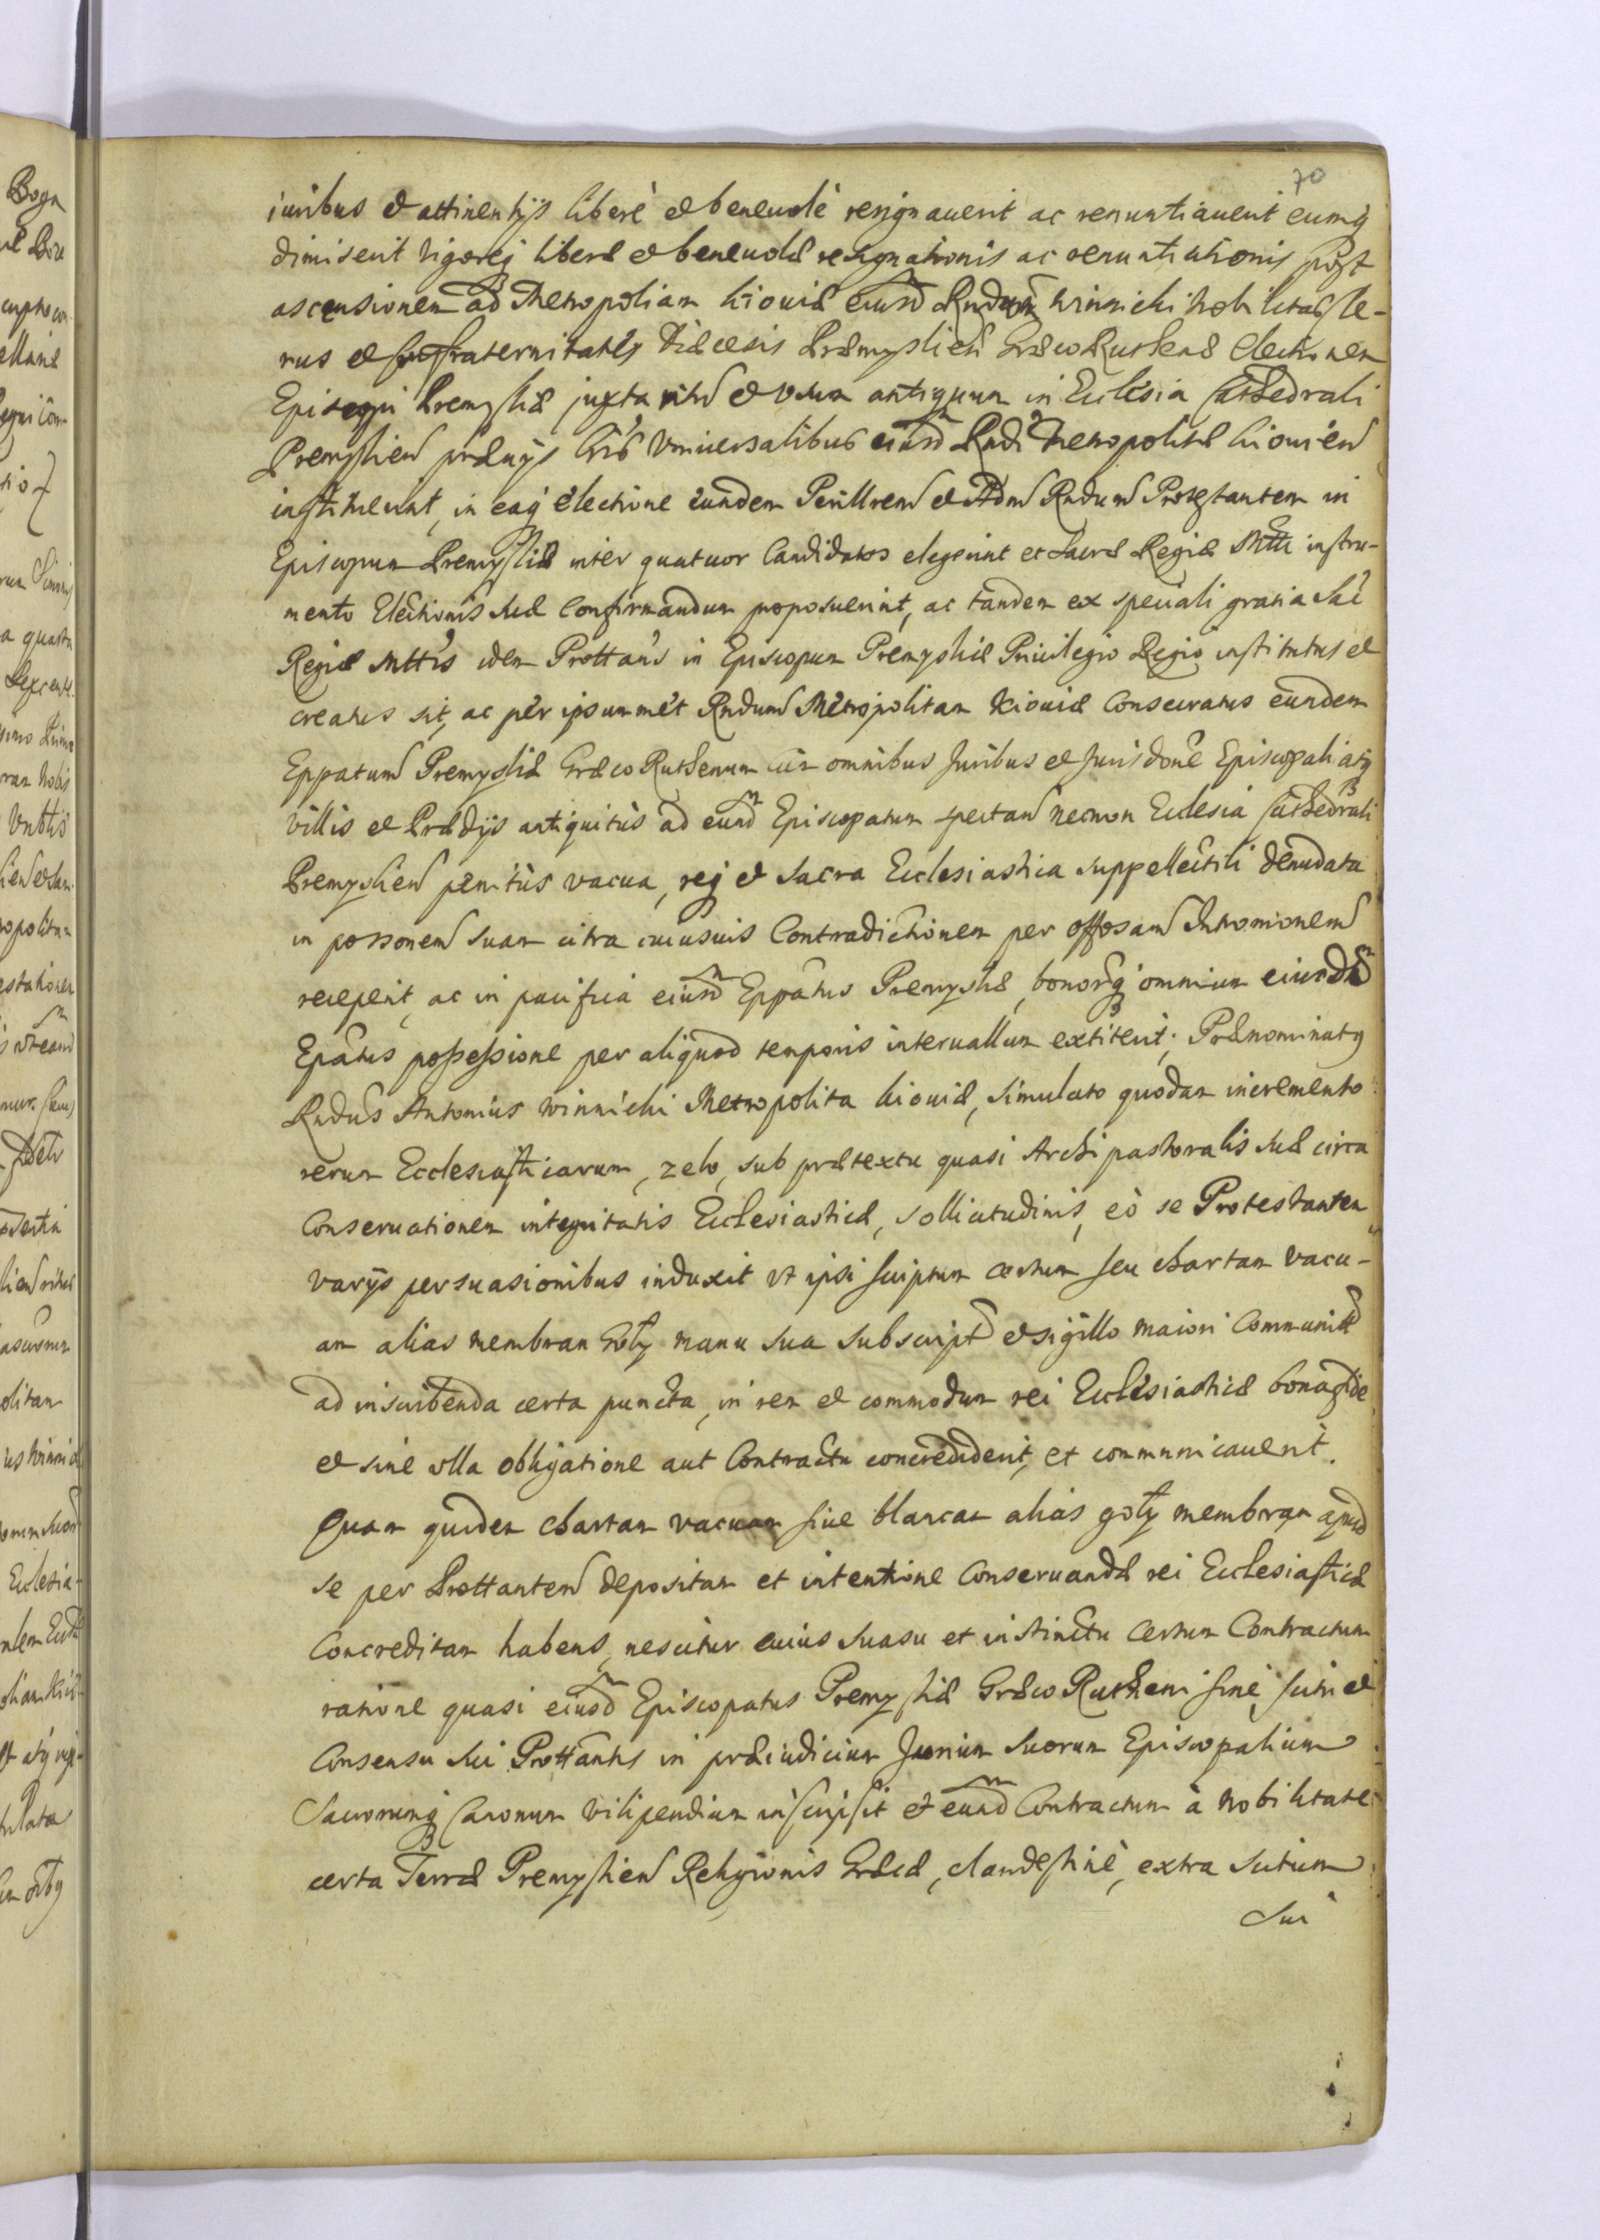 70
iuribus et attinentijs liberè et beneuolè resignauerit ac renuntiauerit eumq́
dimiserit vigoreq́ liberæ et beneuolæ resignationis ac renuntiationis post
ascensionem ad Metropoliam Kiouiæ eiusd Rndi Winnicki Nobilitas Cle-
rus et fraternitates Diæcesis Præmyslien Græco Ruthenæ electionem
Episcopi Premysliæ juxta ritu et vsum antiquum in Ecclesia Cathedrali
Premyslien præuijs Lris Vniuersalibus eiusd Rndi Metropolitæ Kiouien
instituerint, in eaq́ electione eundem Perillrem et Adm Rndum Protestantem in
Episcopum Premysliæ inter quatuor Candidatos elegerint et Sacræ Regiæ Mtti instru-
mento Electionis suæ confirmandum proposuerint, ac tandem ex speciali gratia Sac
Regiæ Mttis idem Prottans in Episcopum Premysliæ Priuilegio Regio institutus et
creatus sit, ac per ipsummet Rndum Metropolitam Kiouiæ Consecratus eundem
Eppatum Premysliæ Græco Ruthenum cum omnibus Juribus et Jurisdone Episcopali atq́
villis et Prædijs antiquitùs ad eund Episcopatum spectan necnon Ecclesia Cathedrali
Premyslien penitùs vacua, req́ et sacra Ecclesiastica suppellectili denudata
in possonem suam citra cuiusuis Contradictionem per offosam Intromionem
receperit, ac in pacifica eiusd Eppatus Premysliæ, bonorq́ omnium eiusdm
Epatus possessione per aliquod temporis interuallum extiterit; Prænominatq
Rndus Antonius Winnicki Metropolita Kiouiæ, simulato quodam incremento
rerum Ecclesiasticarum, zelo, sub prætextu quasi Archipastoralis suæ circa
Conseruationem integritatis Ecclesiasticæ, sollicitudinis, eò se Protestantem
varijs persuasionibus induxit vt ipsi scriptum certum seu chartam vacu-
am alias membran Goły manu sua subscript et sigillo maiori Communit
ad inscribenda certa puncta, in rem et commodum rei Ecclesiasticæ bona fide
et sine vlla obligatione aut Contractu concrediderit, et communicauerit.
Quam quidem chartam vacuam siue blancam alias goły membran apud
se per Prottantem depositam et intentione Conseruandæ rei Ecclesiasticæ
Concreditam habens, nescitur cuius suasu et instinctu certum Contractum
ratione quasi eiusd Episcopatus Premysliæ Græco Rutheni sine scitu et
Consensu sui Prottantis in præiudicium Jurium suorum Episcopalium
Sacrorumq́ Canonum vilipendium inscripsit et eund Contractum à Nobilitate
certa Terræ Premyslien Religionis Græcæ, clandestinè, extra scitum
sui